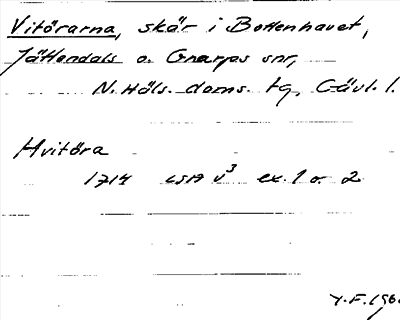 Vitörarna, skär i Bottenhavet,
Jättendals o. Gnarps snr,
N. Häls. doms. tg, Gävl. l.
Hvitöra
1714 LSA V3 ex. 1 o. 2
Y.F. 196